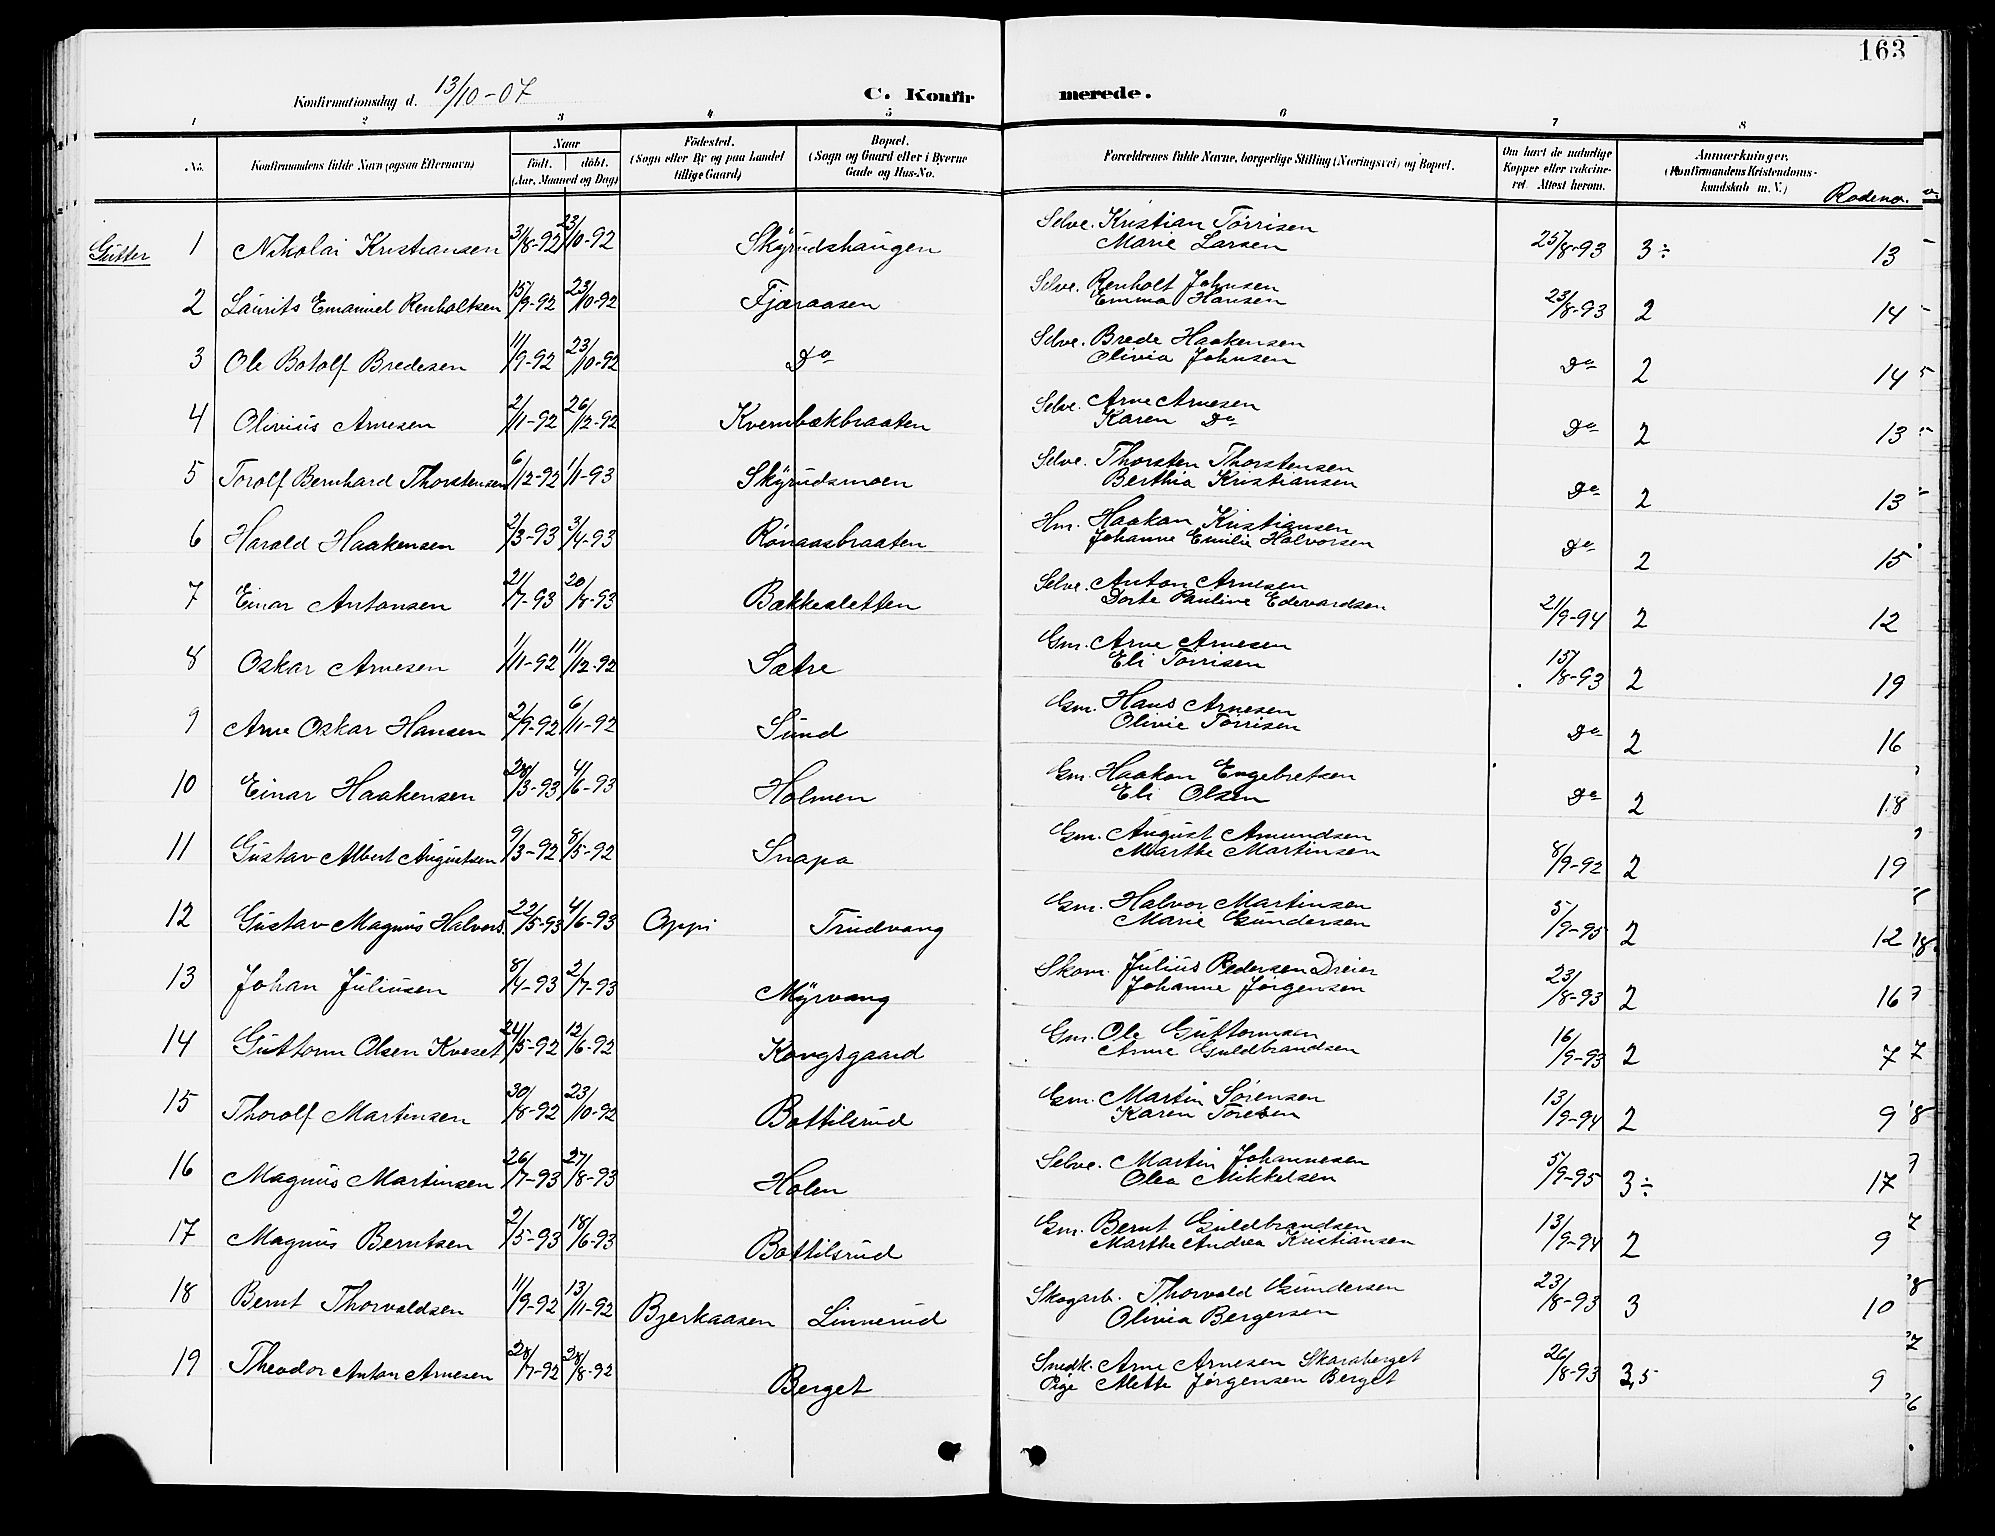 163
Konfirmationsdag d. 13/10-07 C. Konfirmerede.
1 2 3 4 5 6 7 8
No. Konfirmandens fulde Navn (ogsaa Efternavn) Naar født. døbt. (Aar, Maaned og Dag) Fødested. (Sogn eller By og paa Landet tillige Gaard) Bopæl. (Sogn og Gaard eller i Byerne Gade og Hus-No. Forældrenes fulde Navne, borgerlige Stilling (Næringsvei) og Bopæl. Om havt de naturlige Kopper eller vakcineret. Attest herom. Anmærkninger. (Konfirmandens Kristendomskundskab m. V.) Rodeno.
Gutter 1 Nikolai Kristiansen 31/8-92 23/10-92 Skyrudshaugen Selve. Kristian Tørrisen Marie Larsen 25/8-93 3÷ 13
2 Laurits Emanuel Renholtsen 15/9-92 23/10-92 Fjæraasen Selve. Renholt Johnsen Emma Hansen 23/8-93 2 14
3 Ole Botolf Bredesen 11/9-92 23/10-92 Do Selve. Brede Haakensen Olivia Johnsen Do 2 14
4 Olivius Arnesen 2/11-92 26/12-92 Kvernbækbraaten Selve. Arne Arnesen Karen Do Do 2 13
5 Torolf Bernhard Thorstensen 6/12-92 1/1-93 Skyrudsmoen Selve. Thorsten Thorstensen Berthia Kristiansen Do 2 13
6 Harald Haakensen 2/3-93 3/4-93 Rønaasbraaten Hm. Haakan Kristiansen Johanne Emilie Halvorsen Do 2 15
7 Einar Antonsen 21/7-93 20/8-93 Bakkesletten Selve. Anton Arnesen Dorte Pauline Edevardsen 21/9-94 2 12
8 Oskar Arnesen 1/11-92 11/12-92 Sætre Gm. Arne Arnesen Eli Tørrisen 15/8-93 2 19
9 Arne Oskar Hansen 2/9-92 6/11-92 Sund Gm. Hans Arnesen Olivie Tørrisen Do 2 16
10 Einar Haakensen 28/3-93 4/6-93 Holmen Gm. Haakon Engebretsen Eli Olsen Do 2 18
11 Gustav Albert Augustsen 9/3-92 8/5-92 Snapa Gm. August Amundsen Marthe Martinsen 8/9-92 2 19
12 Gustav Magnus Halvors. 22/5-93 4/6-93 Oppi Trudvang Gm. Halvor Martinsen Marie Gundersen 5/9-95 2 12
13 Johan Juliusen 8/4-93 2/7-93 Myrvang Skom. Julius Pedersen Dreier Johanne Jørgensen 23/8-93 2 16
14 Guttorm Olsen Kveset 24/5-92 12/6-92 Kongsgaard Gm. Ole Guttormsen Anne Guldbrandsen 16/9-93 2 7
15 Thorolf Martinsen 30/8-92 23/10-92 Bottilsrud Gm. Martin Sørensen Karen Toresen 13/9-94 2 9
16 Magnus Martinsen 26/7-93 27/8-93 Holen Selve. Martin Johannesen Olea Mikkelsen 5/9-95 3÷ 17
17 Magnus Berntsen 2/5-93 18/6-93 Bottilsrud Gm. Bernt Guldbrandsen Marthe Andrea Kristiansen 13/9-94 2 9
18 Bernt Thorvaldsen 11/9-92 13/11-92 Bjerkaasen Linnerud Skogarb. Thorvald Gundersen Olivia Bergersen 23/8-93 3 10
19 Theodor Anton Arnesen 28/7-92 28/8-92 Berget Snedk. Arne Arnesen Skaraberget Pige Alette Jørgensen Berget 26/8-93 3,5 9